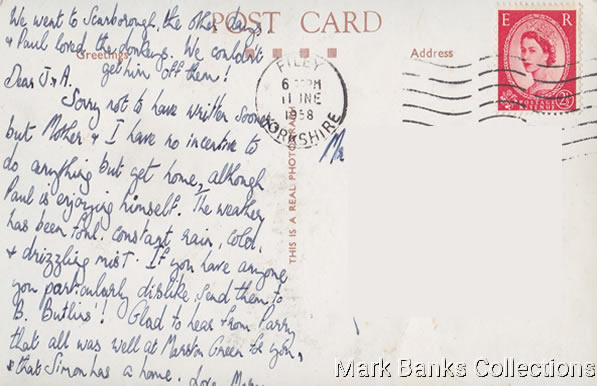 We went to Scarborough, the other day,
+ Paul loved the donkeys. We couldn't
get him off them!
POST CARD
Greetings
Address
E R
FILEY
6 PM
11 JNE
1958
YORKSHIRE
THIS IS A REAL PHOTOGRAPH
Dear J + A.
Sorry not to have written sooner
but Mother + I have no incentive to
do anything but get home, although
Paul is enjoying himself. The weather
has been foul. constant rain, cold,
+ drizzling mist. If you have anyone
you particularly dislike, send them to
B. Butlins'!! Glad to hear from Parry
that all was well at Marston Green for you,
+ that Simon has a home. Love
Mark Banks Collections